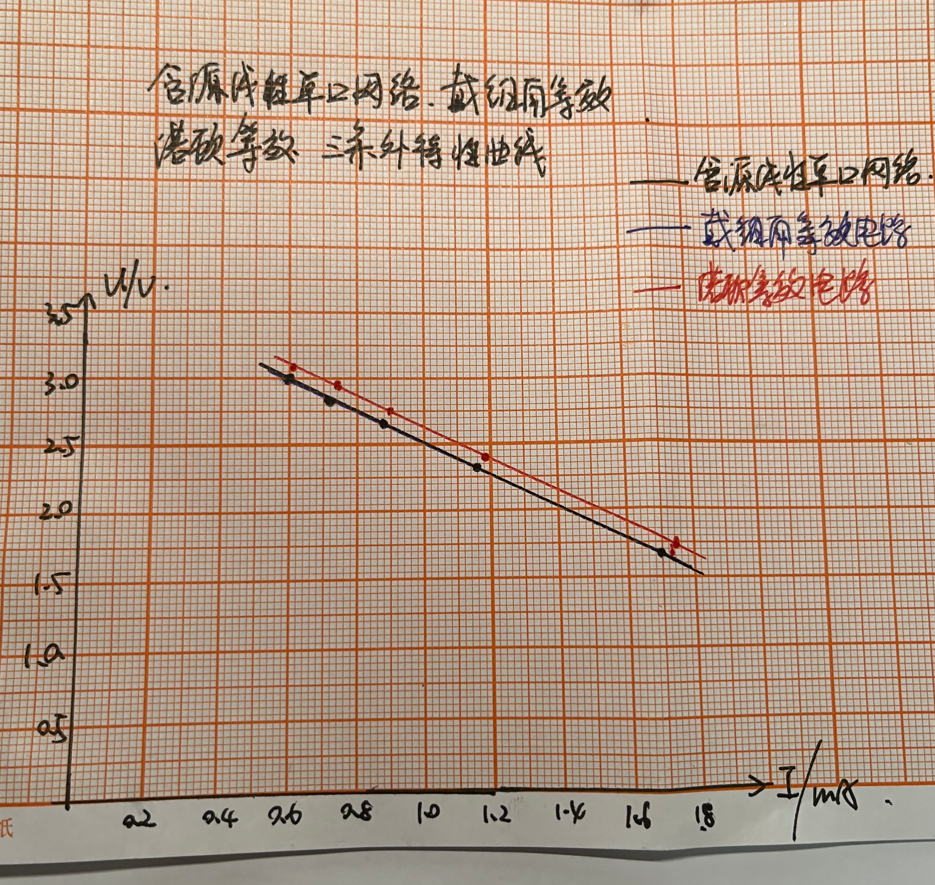 含源线性单口网络.戴维南等效
诺顿等效 三条外特性曲线
含源线性单口网络.
戴维南等效电路
诺顿等效电路
U/V.
3.5
3.0
2.5
2.0
1.5
1.0
0.5
0.2 0.4 0.6 0.8 1.0 1.2 1.4 1.6 1.8 I/mA.
纸